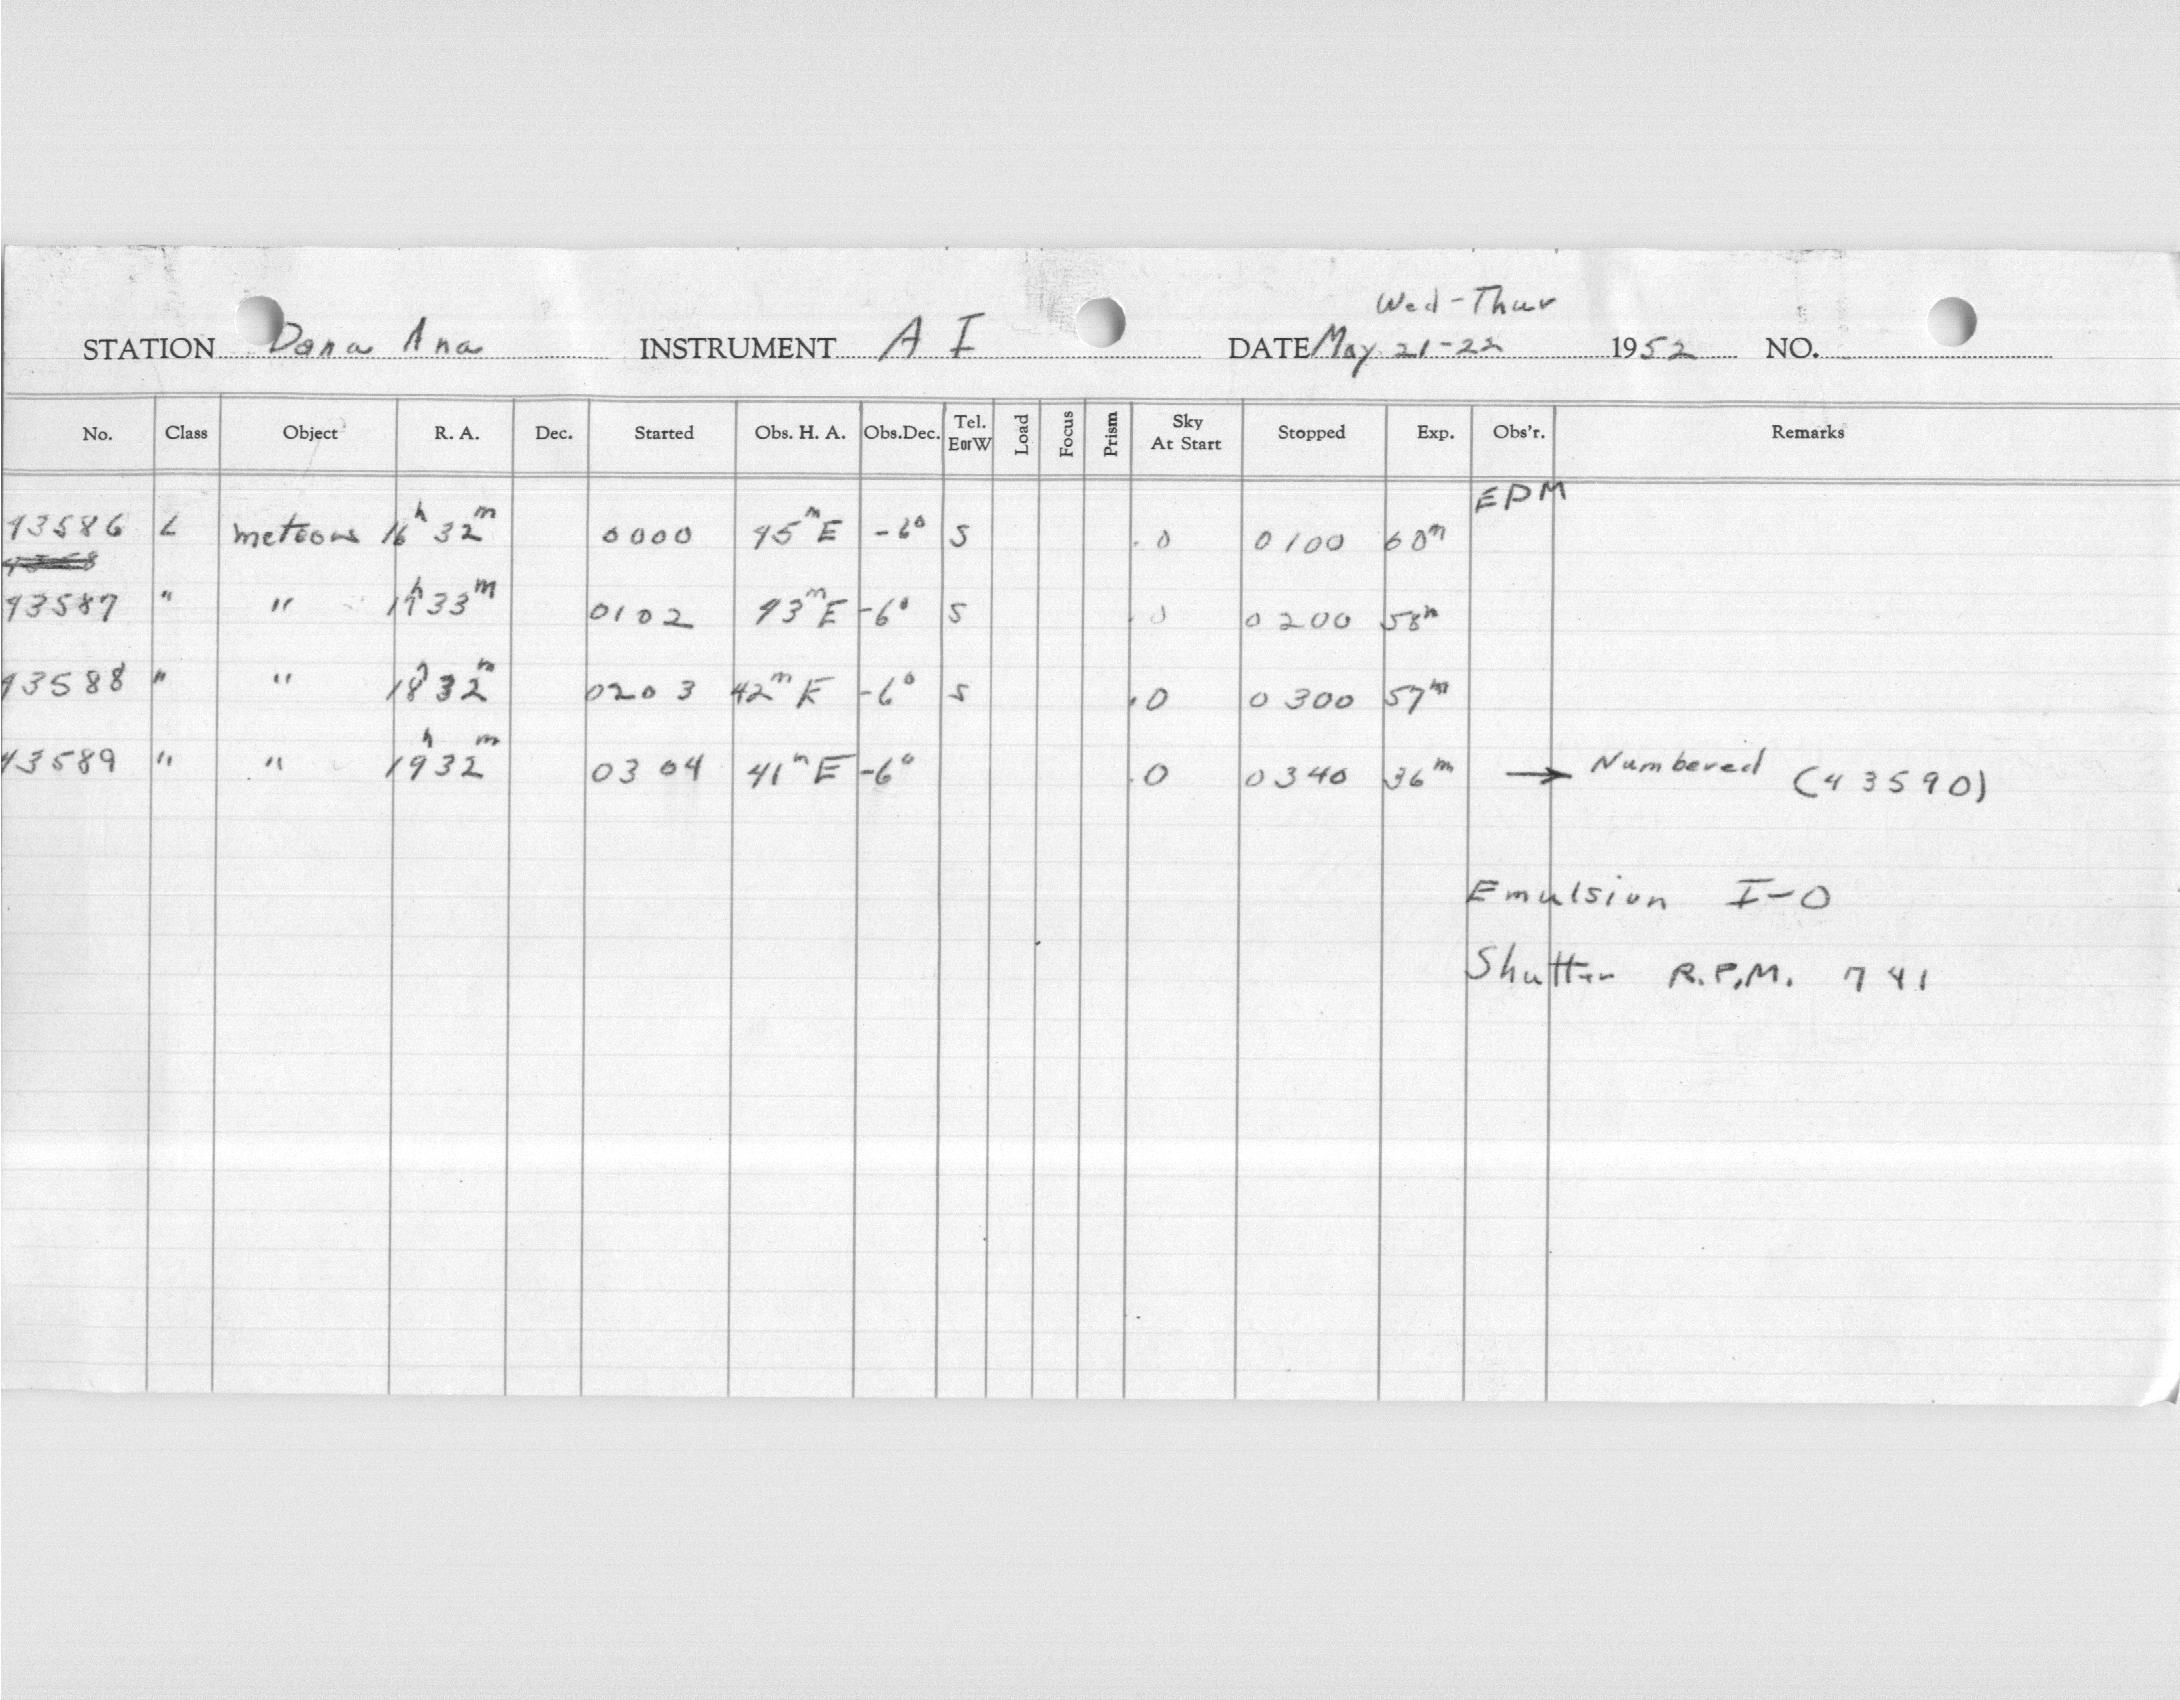 Wed-Thur
STATION Dona Ana INSTRUMENT A I DATE May 21-22 1952 NO.
No. Class Object R. A. Dec. Started Obs. H. A. Obs.Dec. Tel. E or W Load Focus Prism Sky At Start Stopped Exp. Obs'r. Remarks
EPM
43586 L meteors 16h 32m 0000 45m E -6° S .0 0100 60m
43587 " " 17h 33m 0102 43m E -6° S .0 0200 58m
43588 " " 18h 32m 0203 42m E -6° S .0 0300 57m
43589 " " 19h 32m 0304 41m E -6° .0 0340 36m → Numbered (43590)
Emulsion I-O
Shutter R.P.M. 741